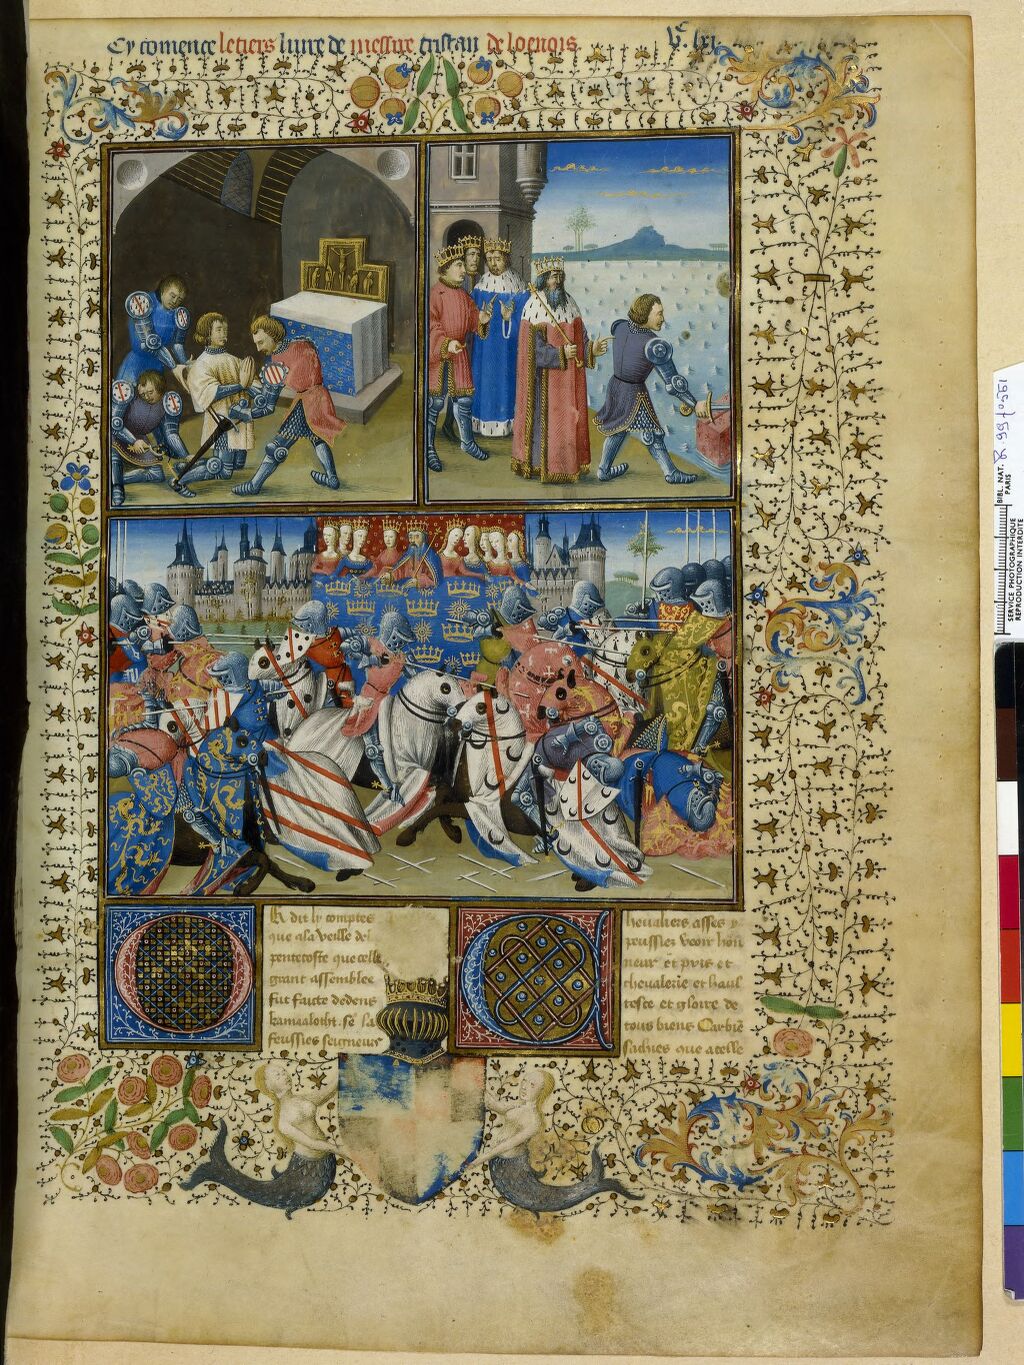 Cy comence le tiers liure de messire tristan de loenois
Or dit ly comptes
que a la veille de
pentecoste que celle
grant assemblee
fut faicte dedens
kamaalotht. se la
feussies seigneurs
Chevaliers asses y
peussies veoir hon
neur et pris et
chevalerie et haul
tesce et gloire de
tous biens Car bie
sachies que a celle
BIBL. NAT.
PARIS
R. 99 f° 561
SERVICE PHOTOGRAPHIQUE
REPRODUCTION INTERDITE